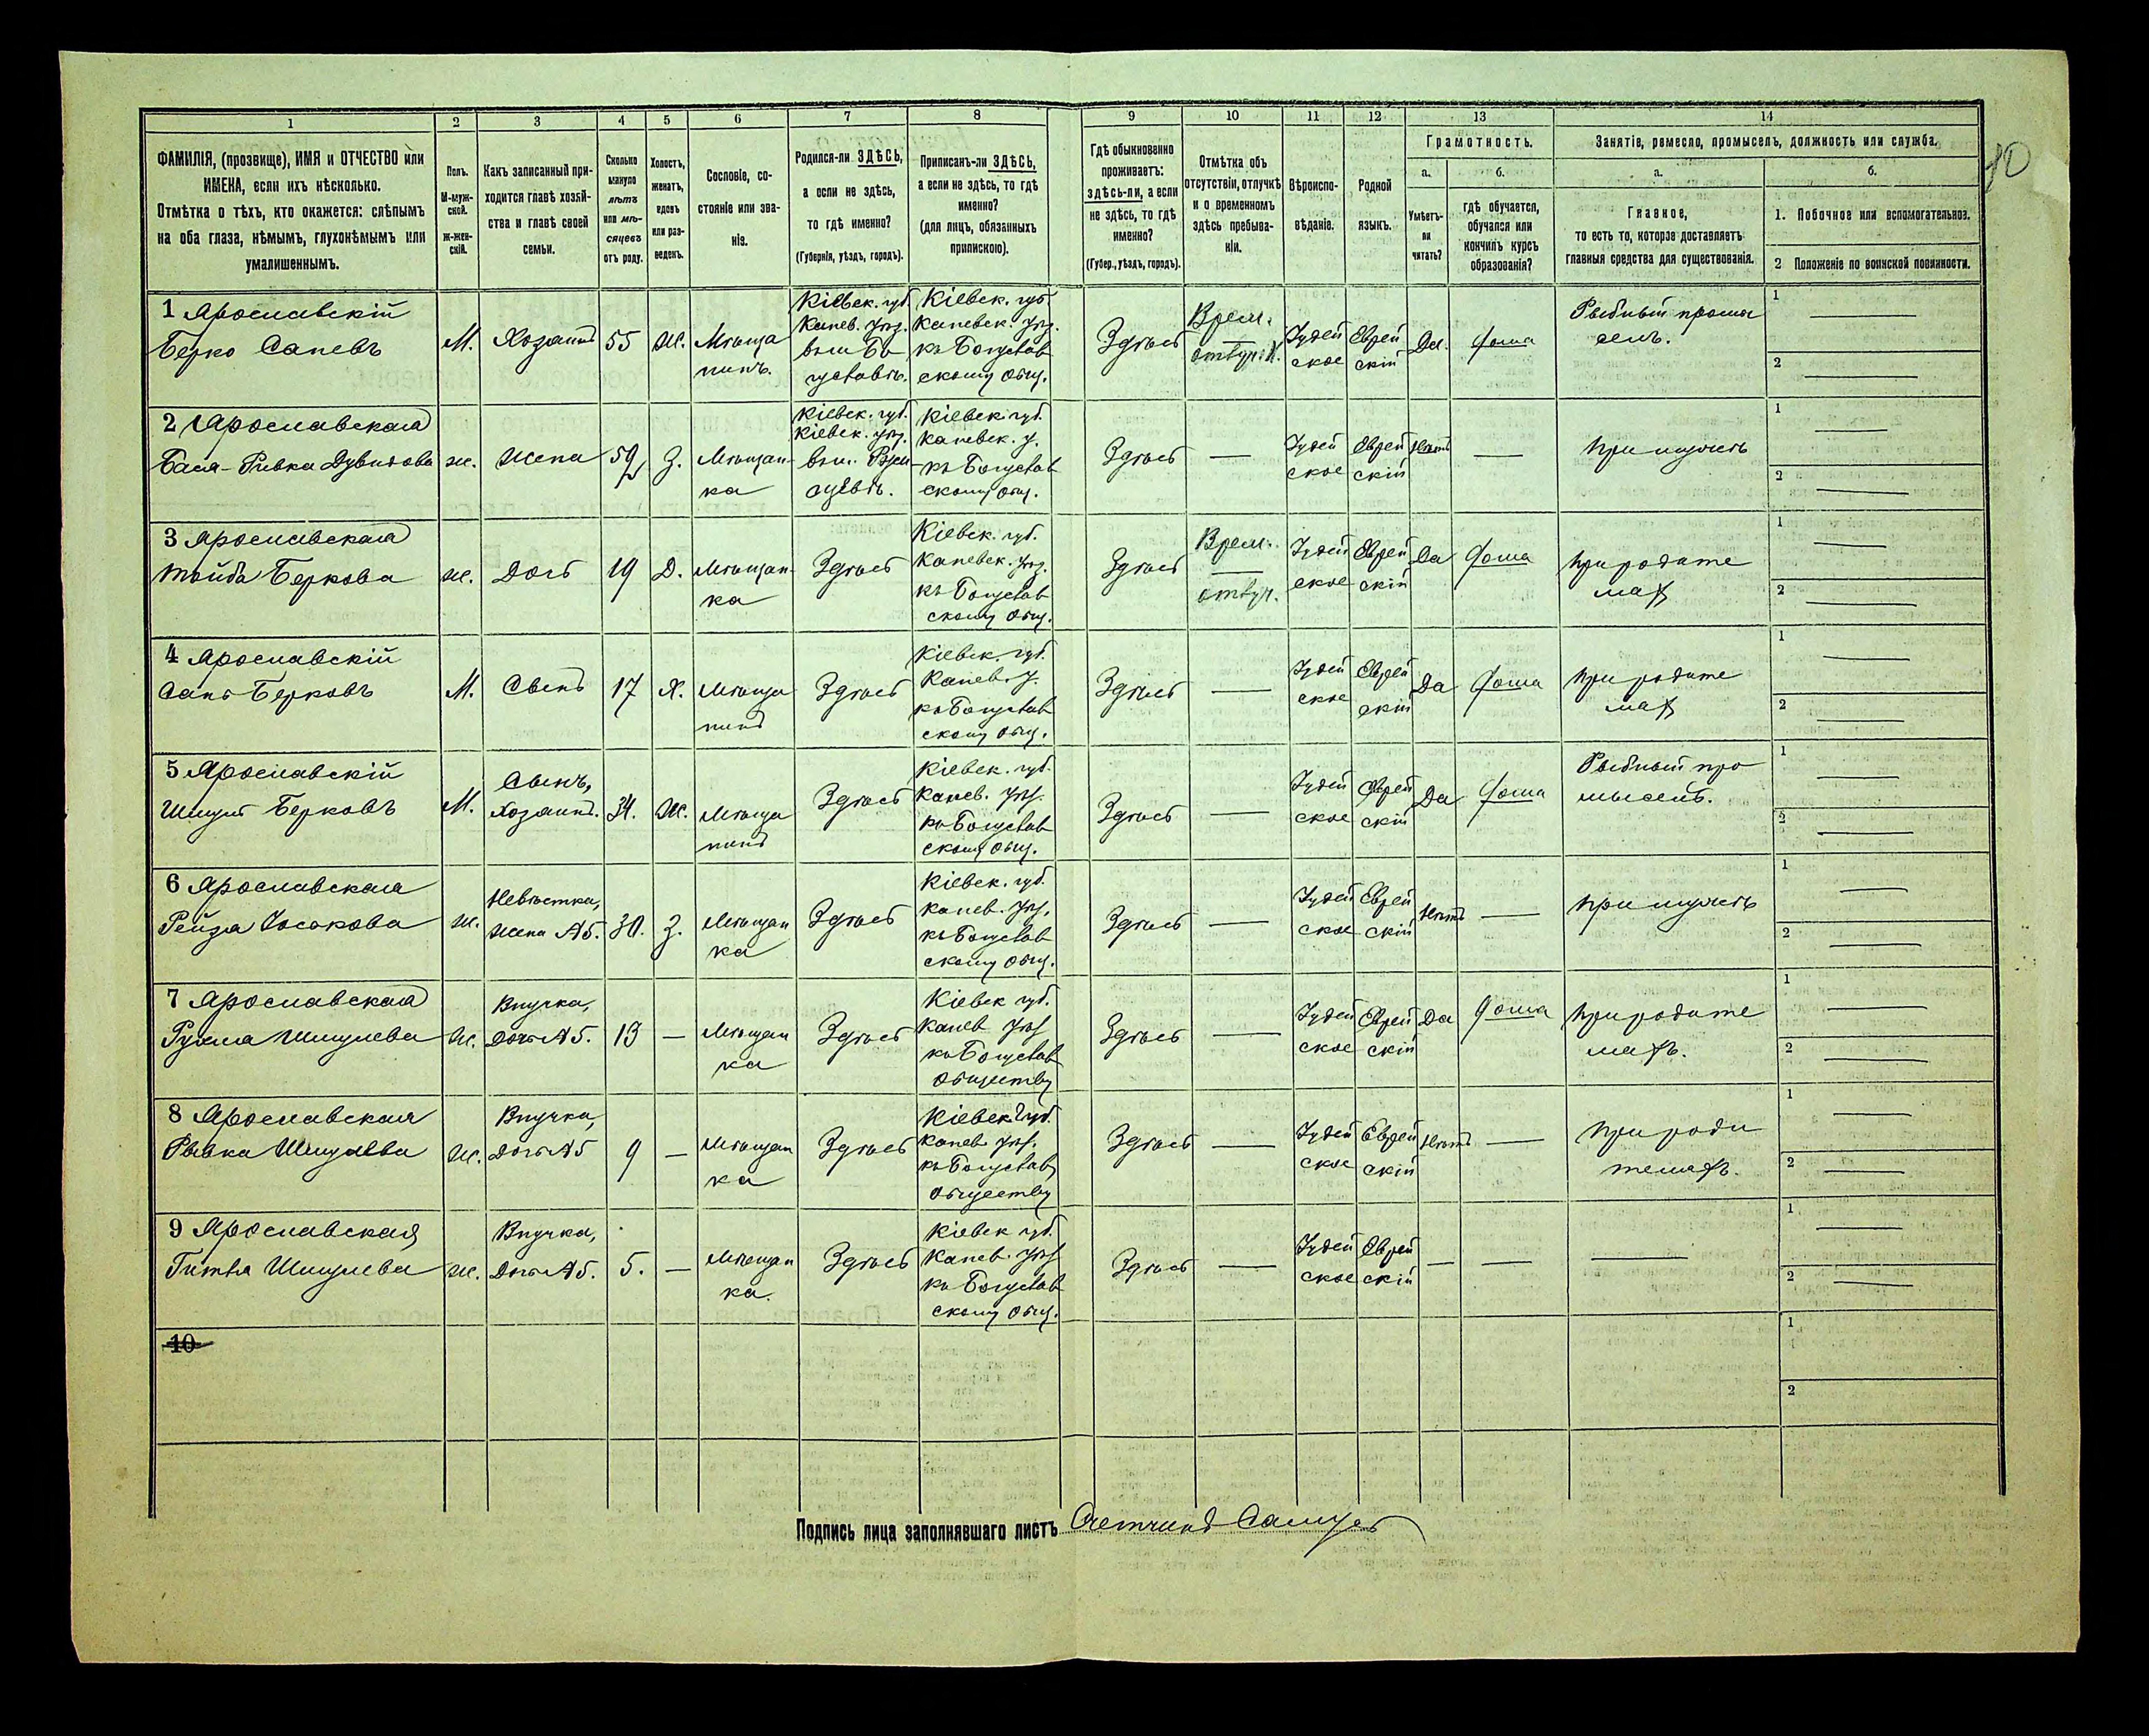 1
2
3
4
5
6
7
8
9
10
11
12
13
14
ФАМИЛІЯ, (прозвище), ИМЯ и ОТЧЕСТВО или
ИМЕНА, если ихъ нѣсколько.
Отмѣтка о тѣхъ, кто окажется: слѣпымъ
на оба глаза, нѣмымъ, глухонѣмымъ или
умалишеннымъ.
Полъ.
М-муж-
ской.
ж-жен-
скій.
Какъ записанный при-
ходится главѣ хозяй-
ства и главѣ своей
семьи.
Сколько
минуло
лѣтъ
или мѣ-
сяцевъ
отъ роду.
Холостъ,
женатъ,
вдовъ
или раз-
веденъ.
Сословіе, со-
стояніе или зва-
ніе.
Родился-ли ЗДѢСЬ,
а если не здѣсь,
то гдѣ именно?
(Губернія, уѣздъ, городъ).
Приписанъ-ли ЗДѢСЬ,
а если не здѣсь, то гдѣ
именно?
(для лицъ, обязанныхъ
припискою).
Гдѣ обыкновенно
проживаетъ:
здѣсь-ли, а если
не здѣсь, то гдѣ
именно?
(Губер., уѣздъ, городъ).
Отмѣтка объ
отсутствіи, отлучкѣ
и о временномъ
здѣсь пребыва-
ніи.
Вѣроиспо-
вѣданіе.
Родной
языкъ.
Грамотность.
а.
Умѣетъ-
ли
читать?
б.
гдѣ обучается,
обучался или
кончилъ курсъ
образованія?
Занятіе, ремесло, промыселъ, должность или служба.
а.
Главное,
то есть то, которое доставляетъ
главныя средства для существованія.
б.
1. Побочное или вспомогательное.
2 Положеніе по воинской повинности.
1 Ярославскій
Берко Сапевъ
М.
Хозяинъ
55
Ж.
Мѣща
нинъ.
Кіевск. губ.
Канев. уѣз.
въ м. Бо
гуславѣ.
Кіевск. губ.
Каневск. уѣз.
къ Богуслав
скому общ.
Здѣсь
Врем.
Іудей
ское
Еврей
скій
Да.
дома
Рыбный промы
селъ.
1
2
2 Ярославская
Бася-Ривка Дувидова
ж.
Жена
З.
Мѣщан-
ка
Кіевск. губ.
Кіевск. уѣз.
Кіевск. губ.
Каневск. у.
къ Богуслав
скому общ.
Здѣсь
Іудей
ское
Еврей
скій
Нѣтъ
при мужѣ
1
2
3 Ярославская
Тойба Беркова
ж.
Дочь
19
Д.
Мѣщан-
ка
Здѣсь
Кіевск. губ.
Каневск. уѣз.
къ Богуслав
скому общ.
Здѣсь
Врем.
отлуч.
Іудей
ское
Еврей
скій
Да
дома
при родите
ляхъ
1
2
4 Ярославскій
Сапъ Берковъ
М.
Сынъ
17
Х.
Мѣща
нинъ
Здѣсь
Кіевск. губ.
Канев. у.
къ Богуслав
скому общ.
Здѣсь
Іудей
ское
Еврей
скій
Да
дома
при родите
ляхъ
1
2
5 Ярославскій
Шмулъ Берковъ
М.
Сынъ,
Хозяинъ.
34.
Ж.
Мѣща
нинъ
Здѣсь
Кіевск. губ.
Канев. уѣз.
къ Богуслав
скому общ.
Здѣсь
Іудей
ское
Еврей
скій
Да
дома
Рыбный про
мыселъ.
1
2
6 Ярославская
Рейза Іосокова
ж.
Невѣстка,
жена №5.
30.
З.
Мѣщан
ка
Здѣсь
Кіевск. губ.
Канев. уѣз.
къ Богуслав
скому общ.
Здѣсь
Іудей
ское
Еврей
скій
Нѣтъ
при мужѣ
1
2
7 Ярославская
Рухля Шмулева
ж.
Внучка,
дочь №5.
13
Мѣщан
ка
Здѣсь
Кіевск губ.
Канев уѣз
къ Богуслав
обществу
Здѣсь
Іудей
ское
Еврей
скій
Да
дома
при родите
ляхъ.
1
2
8 Ярославская
Рывка Шмулева
ж.
Внучка,
дочь №5
9
Мѣщан
ка
Здѣсь
Кіевск губ.
Канев уѣз.
къ Богуслав
обществу
Здѣсь
Іудей
ское
Еврей
скій
Нѣтъ
при роди
теляхъ.
1
2
9 Ярославская
Гитля Шмулева
ж.
Внучка,
Дочь №5.
5.
Мѣщан
ка.
Здѣсь
Кіевск губ.
Канев. уѣз
къ Богуслав
скому общ.
Здѣсь
Іудей
ское
Еврей
скій
1
2
10
1
2
Подпись лица заполнявшаго листъ